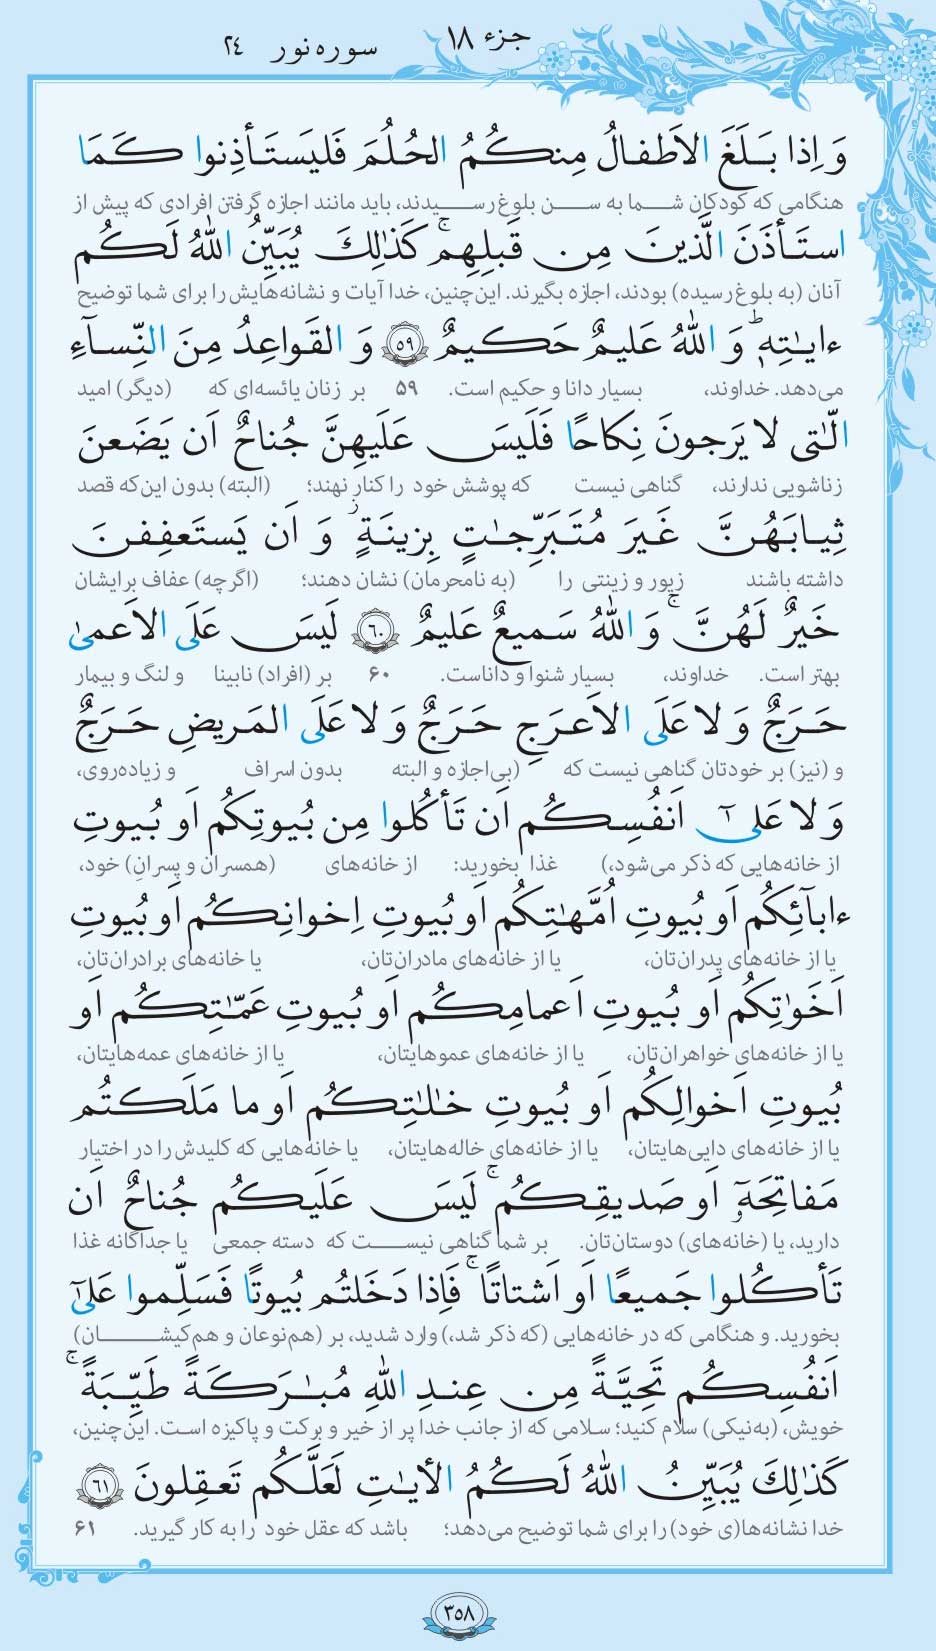 جزء ۱۸ سوره نور ۲۴
وَ اِذا بَلَغَ الاَطفالُ مِنكُمُ الحُلُمَ فَليَستَأذِنوا كَمَا
هنگامی که کودکان شما به سن بلوغ رسیدند، باید مانند اجازه گرفتن افرادی که پیش از
استَأذَنَ الَّذينَ مِن قَبلِهِم ۚ كَذٰلِكَ يُبَيِّنُ اللّٰهُ لَكُم
آنان (به بلوغ رسیده) بودند، اجازه بگیرند. این‌چنین، خدا آیات و نشانه‌هایش را برای شما توضیح
ءاياتِهٖ ؕ وَ اللّٰهُ عَليمٌ حَكيمٌ ﴿۵۹﴾ وَ القَواعِدُ مِنَ النِّسآءِ
می‌دهد. خداوند، بسیار دانا و حکیم است. ۵۹ بر زنان یائسه‌ای که (دیگر) امید
الّٰتی لا يَرجونَ نِكاحًا فَلَيسَ عَلَيهِنَّ جُناحٌ اَن يَضَعنَ
زناشویی ندارند، گناهی نیست که پوشش خود را کنار نهند؛ (البته) بدون این‌که قصد
ثِيابَهُنَّ غَيرَ مُتَبَرِّجٰتٍ بِزينَةٍ ۖ وَ اَن يَستَعفِفنَ
داشته باشند زیور و زینتی را (به نامحرمان) نشان دهند؛ (اگرچه) عفاف برایشان
خَيرٌ لَهُنَّ ۚ وَ اللّٰهُ سَميعٌ عَليمٌ ﴿۶۰﴾ لَيسَ عَلَى الاَعمىٰ
بهتر است. خداوند، بسیار شنوا و داناست. ۶۰ بر (افراد) نابینا و لنگ و بیمار
حَرَجٌ وَ لا عَلَى الاَعرَجِ حَرَجٌ وَ لا عَلَى المَريضِ حَرَجٌ
و (نیز) بر خودتان گناهی نیست که (بی‌اجازه و البته بدون اسراف و زیاده‌روی،
وَ لا عَلىٰٓ اَنفُسِكُم اَن تَأكُلوا مِن بُيوتِكُم اَو بُيوتِ
از خانه‌هایی که ذکر می‌شود،) غذا بخورید: از خانه‌های (همسران و پسران) خود،
ءابآئِكُم اَو بُيوتِ اُمَّهٰتِكُم اَو بُيوتِ اِخوانِكُم اَو بُيوتِ
یا از خانه‌های پدران‌تان، یا از خانه‌های مادران‌تان، یا خانه‌های برادران‌تان،
اَخَوٰتِكُم اَو بُيوتِ اَعمامِكُم اَو بُيوتِ عَمّٰتِكُم اَو
یا از خانه‌های خواهران‌تان، یا از خانه‌های عموهایتان، یا از خانه‌های عمه‌هایتان،
بُيوتِ اَخوالِكُم اَو بُيوتِ خٰلٰتِكُم اَو ما مَلَكتُم
یا از خانه‌های دایی‌هایتان، یا از خانه‌های خاله‌هایتان، یا خانه‌هایی که کلیدش را در اختیار
مَفاتِحَهٗٓ اَو صَديقِكُم ۚ لَيسَ عَلَيكُم جُناحٌ اَن
دارید، یا (خانه‌های) دوستان‌تان. بر شما گناهی نیست که دسته جمعی یا جداگانه غذا
تَأكُلوا جَميعًا اَو اَشتاتًا ۚ فَاِذا دَخَلتُم بُيوتًا فَسَلِّموا عَلىٰٓ
بخورید. و هنگامی که در خانه‌هایی (که ذکر شد،) وارد شدید، بر (هم‌نوعان و هم‌کیشان)
اَنفُسِكُم تَحِيَّةً مِن عِندِ اللّٰهِ مُبٰرَكَةً طَيِّبَةً ۚ
خویش، (به‌نیکی) سلام کنید؛ سلامی که از جانب خدا پر از خیر و برکت و پاکیزه است. این‌چنین،
كَذٰلِكَ يُبَيِّنُ اللّٰهُ لَكُمُ الأياتِ لَعَلَّكُم تَعقِلونَ ﴿۶۱﴾
خدا نشانه‌ها(ی خود) را برای شما توضیح می‌دهد؛ باشد که عقل خود را به کار گیرید. ۶۱
۳۵۸